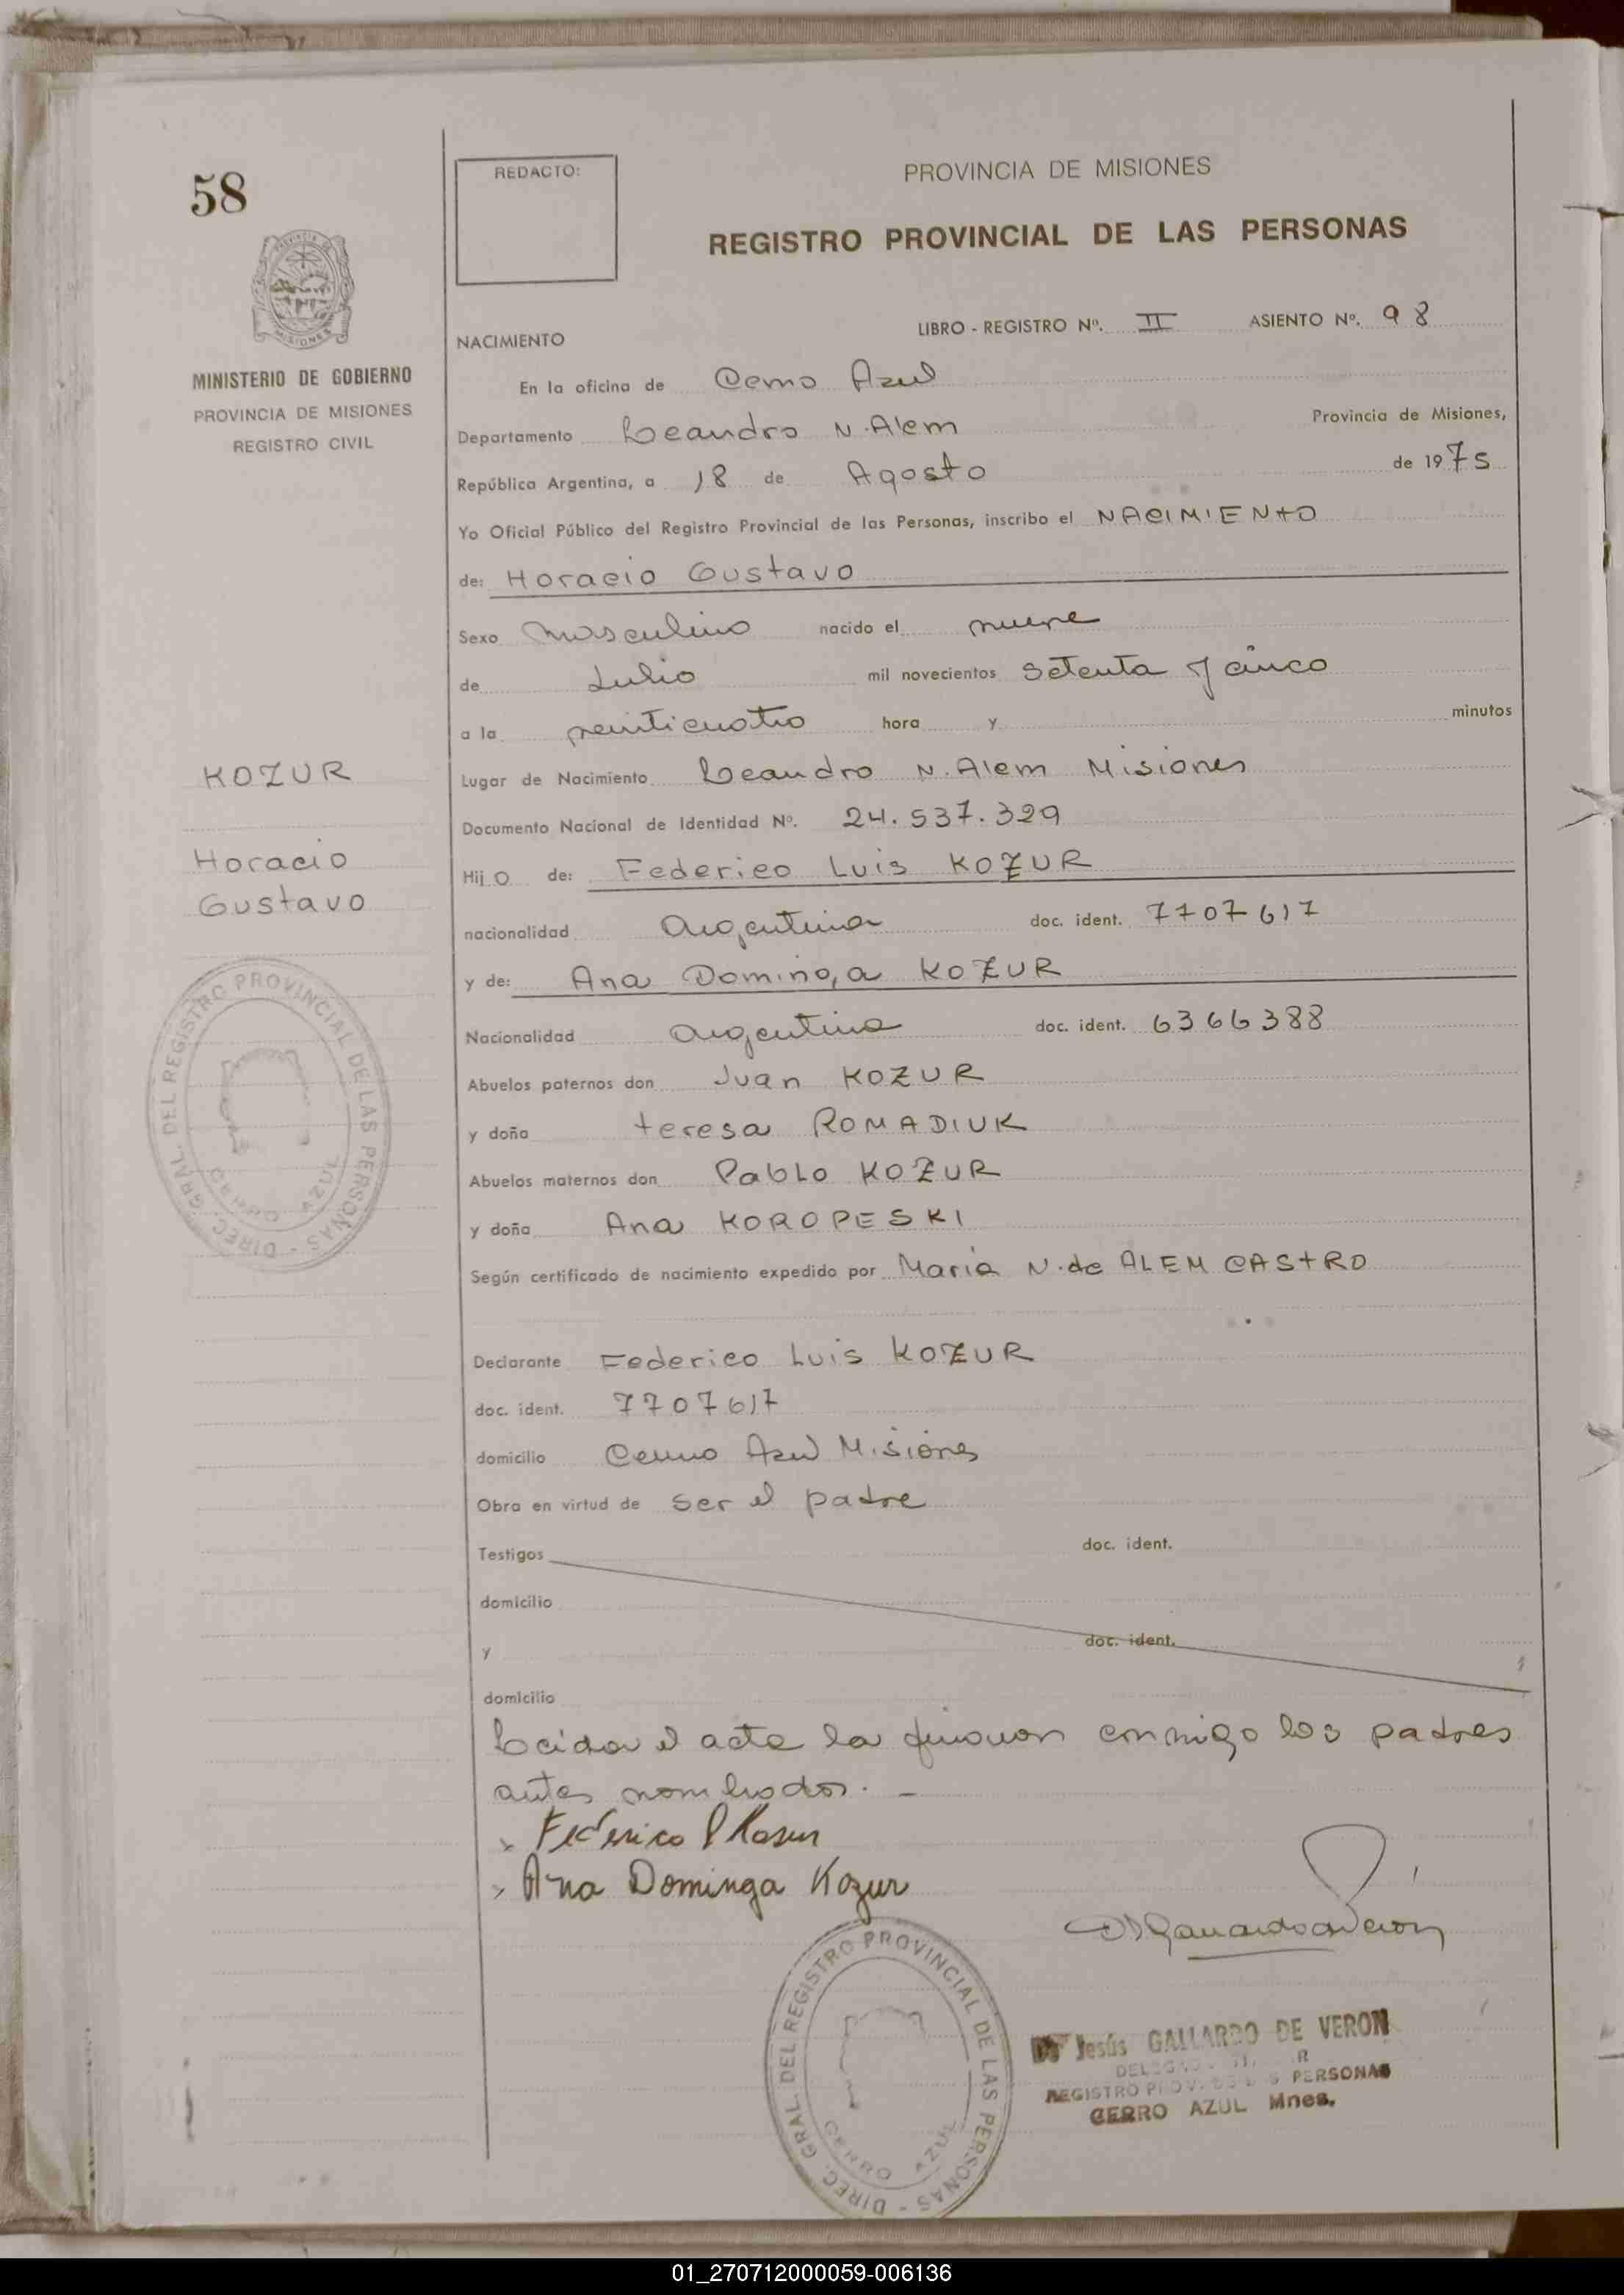 58
REDACTO:
PROVINCIA DE MISIONES
REGISTRO PROVINCIAL DE LAS PERSONAS
MINISTERIO DE GOBIERNO
PROVINCIA DE MISIONES
REGISTRO CIVIL
LIBRO - REGISTRO Nº. II ASIENTO Nº. 98
NACIMIENTO
En la oficina de Cerro Azul
Departamento Leandro N. Alem Provincia de Misiones,
República Argentina, a 18 de Agosto de 1975
Yo Oficial Público del Registro Provincial de las Personas, inscribo el NACIMIENTO
de: Horacio Gustavo
Sexo Masculino nacido el nueve
de Julio mil novecientos setenta y cinco
a la veinticuatro hora y minutos
KOZUR
Lugar de Nacimiento Leandro N. Alem Misiones
Documento Nacional de Identidad Nº. 24.537.329
Horacio
Gustavo
Hijo de: Federico Luis KOZUR
nacionalidad Argentina doc. ident. 7707617
y de: Ana Dominga KOZUR
Nacionalidad Argentina doc. ident. 6366388
Abuelos paternos don Juan KOZUR
y doña Teresa ROMADIUK
Abuelos maternos don Pablo KOZUR
y doña Ana KOROPESKI
Según certificado de nacimiento expedido por Maria N. de ALEM CASTRO
DIREC. GRAL. DEL REGISTRO PROVINCIAL DE LAS PERSONAS -
CERRO AZUL
Declarante Federico Luis KOZUR
doc. ident. 7707617
domicilio Cerro Azul Misiones
Obra en virtud de ser el padre
Testigos doc. ident.
domicilio
y doc. ident.
domicilio
Leida el acta la firman conmigo los padres
antes nombrados. -
Federico L Kosur
Ana Dominga Kozur
DIREC. GRAL. DEL REGISTRO PROVINCIAL DE LAS PERSONAS -
CERRO AZUL
Jesús GALLARDO DE VERON
REGISTRO PROV. PERSONAS
CERRO AZUL Mnes.
01_270712000059-006136